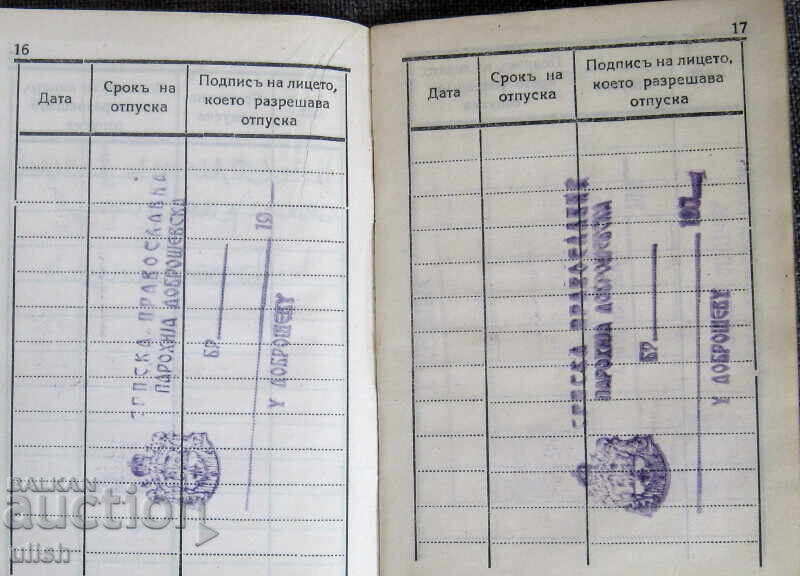 16
Дата
Срокъ на
отпуска
Подписъ на лицето,
което разрешава
отпуска
СРПСКА ПРАВОСЛАВНА
ПАРОХИЈА ДОБРОШЕВСКА
БР
19
У ДОБРОШЕВУ
17
Дата
Срокъ на
отпуска
Подписъ на лицето,
което разрешава
отпуска
СРПСКА ПРАВОСЛАВНА
ПАРОХИЈА ДОБРОШЕВСКА
БР
У ДОБРОШЕВУ
БАЛКАН
auction
ulish